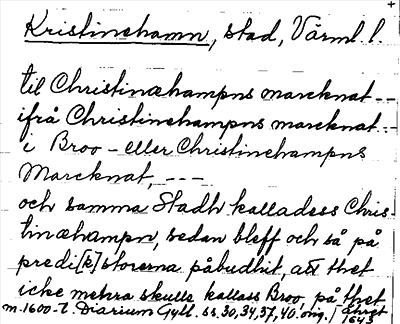 Kristinehamn, stad, Värml. l.
til Christinæhampns marcknat --
ifrå Christinehampns marcknat --
i Broo - eller Christinehampns
Marcknat, ---
och samma Stadh kalladess Chris-
tinæhampn, sedan bleff och så på
predi[k]storerna påbudhit, att thet
icke mehra skulle kallass Broo, på thet
m. 1600-t. Diarium Gyll. ss. 30, 34, 37, 40. orig. / 1643